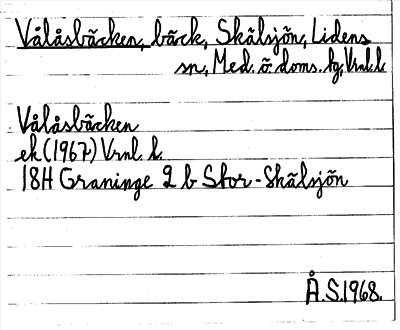 Vålåsbäcken, bäck, Skälsjön, Lidens
sn, Med. ö. doms. hg, Vrnl. l.
Vålåsbäcken
ek (1967) Vrnl. l.
18H Graninge 2 b Stor-Skälsjön
Å.S.1968.